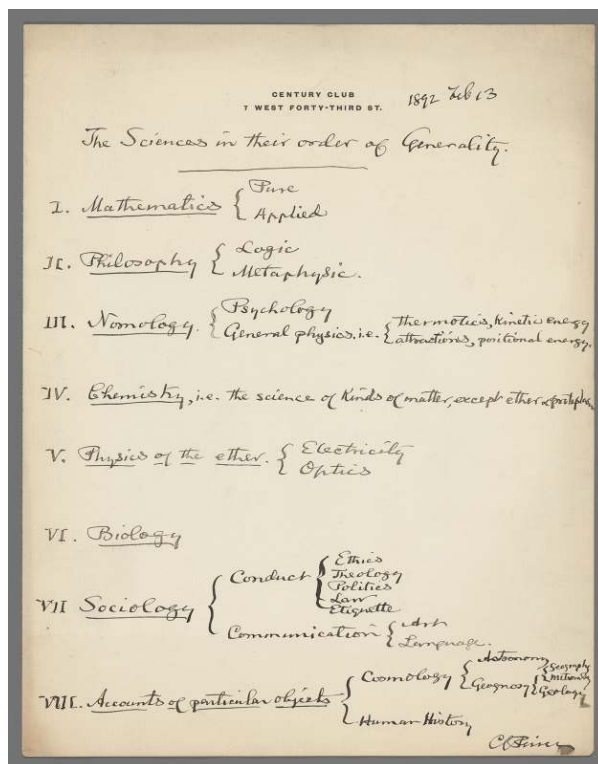 CENTURY CLUB
7 WEST FORTY-THIRD ST.
1892 Feb 13
The Sciences in their order of Generality.
I. Mathematics { Pure
Applied
II. Philosophy { Logic
Metaphysic.
III. Nomology. { Psychology
General physics, i.e. { thermotics, kinetic energy
attractions, positional energy.
IV. Chemistry, i.e. the science of kinds of matter, except ether & protoplasm
V. Physics of the ether. { Electricity
Optics
VI. Biology
VII Sociology { Conduct { Ethics
Theology
Politics
Law
Etiquette
Communication { Art
Language.
VIII. Accounts of particular objects { Cosmology { Astronomy
Geognosy { Geography
Geology
Human History
C S Peirce